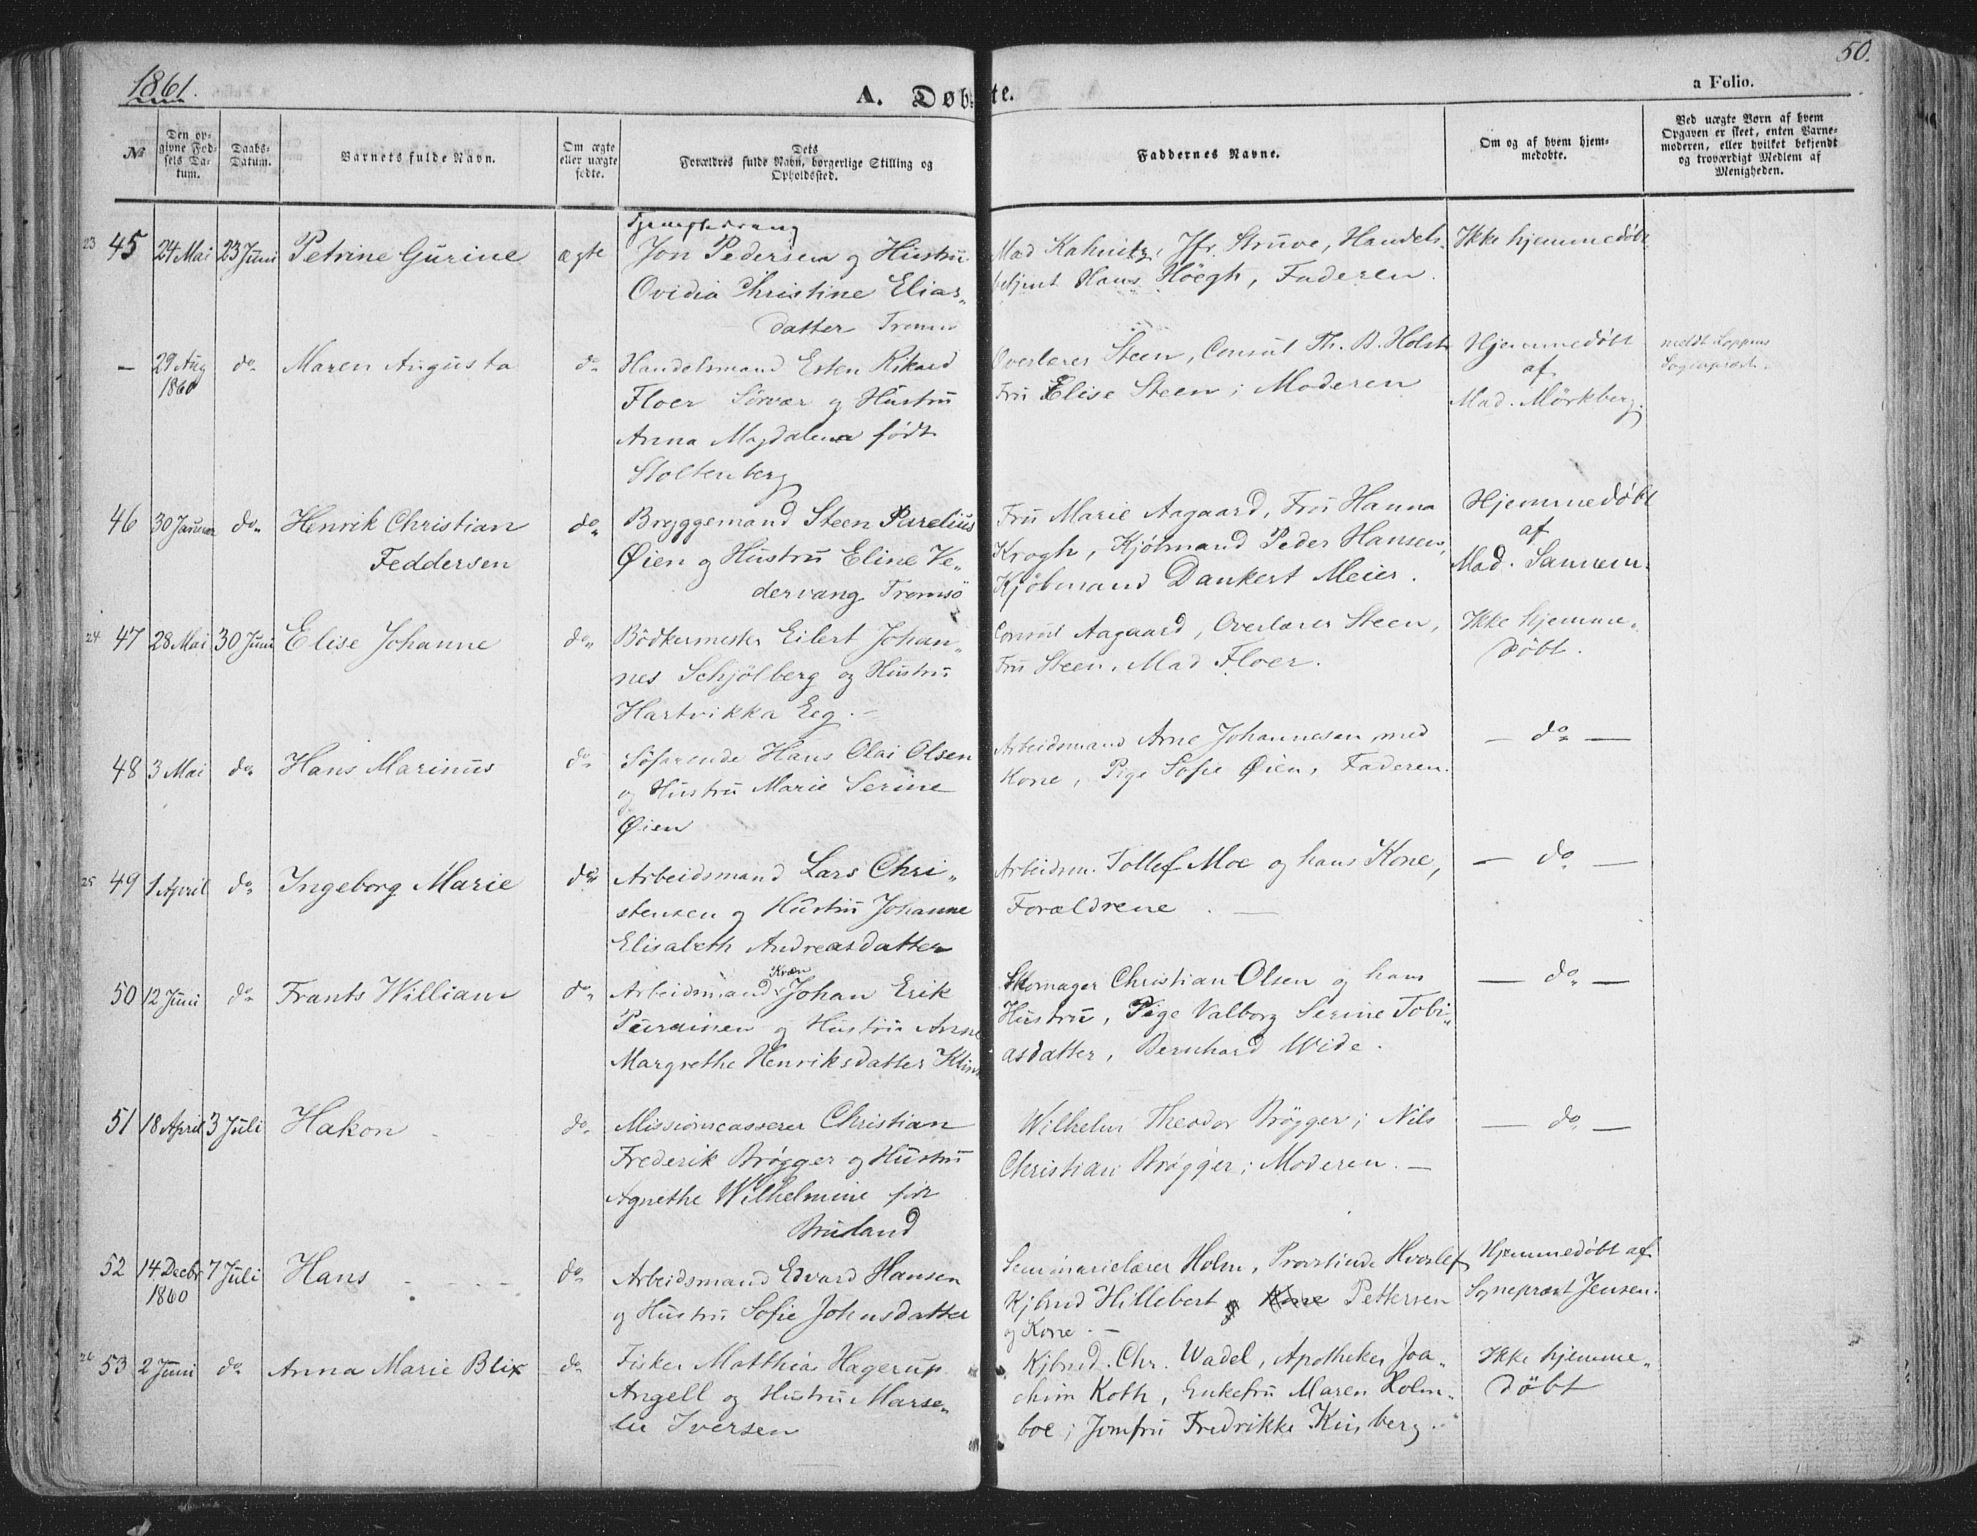 1861.
50.
A. Døbte.
a Folio.
№
Den opgivne Fødsels Datum.
Daabs-Datum.
Barnets fulde Navn.
Om ægte eller uægte fødte.
Dets Forældres fulde Navn, borgerlige Stilling og Opholdssted.
Faddernes Navne.
Om og af hvem hjemmedøbte.
Ved uægte Børn af hvem Opgaven er skeet, enten Barnemoderen, eller hvilket bekjendt og troværdigt Medlem af Menigheden.
23 45 24 Mai 23 Juni Petrine Gurine ægte
Jon Pedersen og Hustru
Ovidia Christine Elias-
datter Tromsø
Mad Kahnitz, Jfr. Struve, Handels-
betjent Hans Höegh, Faderen.
Ikke hjemmedøbt
— 29 Aug 1860 do Maren Augusta do
Handelsmand Esten Rikard
Floer Sörvær og Hustru
Anna Magdalena født
Stoltenberg
Overlærer Steen, Consul Th. B. Holst
Fru Elise Steen; Moderen
Hjemmedøbt
af
Mad. Mörkberg.
meldt Loppens
Sognepræst.
46 30 Januar do Henrik Christian
Feddersen do
Bryggemand Steen Parelius
Øien og Hustru Eline Ve-
dervang Tromsö
Fru Marie Aagaard, Fru Hanna
Krogh, Kjöbmand Peder Hansen,
Kjöbmand Dankert Meier.
Hjemmedøbt
af
Mad.
24 47 28 Mai 30 Juni Elise Johanne do
Bödkermester Eilert Johan-
nes Schjölberg og Hustru
Hartvikka Eeg.
Consul Aagaard, Overlærer Steen,
Fru Steen, Mad Floer.
Ikke hjemme-
døbt.
48 3 Mai do Hans Marinus do
Söfarende Hans Olai Olsen
og Hustru Marie Serine
Øien
Arbeidsmand Arne Johannesen med
Kone, Pige Sofie Øien, Faderen.
— do —
25 49 1 April do Ingeborg Marie do
Arbeidsmand Lars Chri-
stensen og Hustru Johanne
Elisabeth Andreasdatter
Arbeidsm. Tollef Moe og hans Kone,
Forældrene.
— do —
50 12 Juni do Frants William do
Kvæn
Arbeidsmand Johan Erik
Purainen og Hustru Anne
Margrethe Henriksdatter
Skomager Christian Olsen og hans
Hustru, Pige Valborg Serine Tobi-
asdatter, Bernhard Wide.
— do —
51 18 April 3 Juli Hakon do
Missionscasserer Christian
Frederik Brøgger og Hustru
Agnethe Wilhelmine född
Bruland
Wilhelm Theodor Brøgger; Nils
Christian Brøgger; Moderen. —
— do —
52 14 Decbr 1860 7 Juli Hans do
Arbeidsmand Edvard Hansen
og Hustru Sofie Johnsdatter
Seminarielærer Holm, Provstinde Hvoslef
Kjbmd Hillebert og Kone Pettersen
og Kone. —
Hjemmedøbt af
Sognepræst Jensen.
26 53 2 Juni do Anna Marie Blix do
Fisker Matthias Hagerup
Angell og Hustru Marse-
lie Iversen
Kjbmd. Chr. Wadel, Apotheker Joa-
chim Koth, Enkefru Maren Holm-
boe; Jomfru Fredrikke Kiilsberg.
Ikke hjemme-
døbt